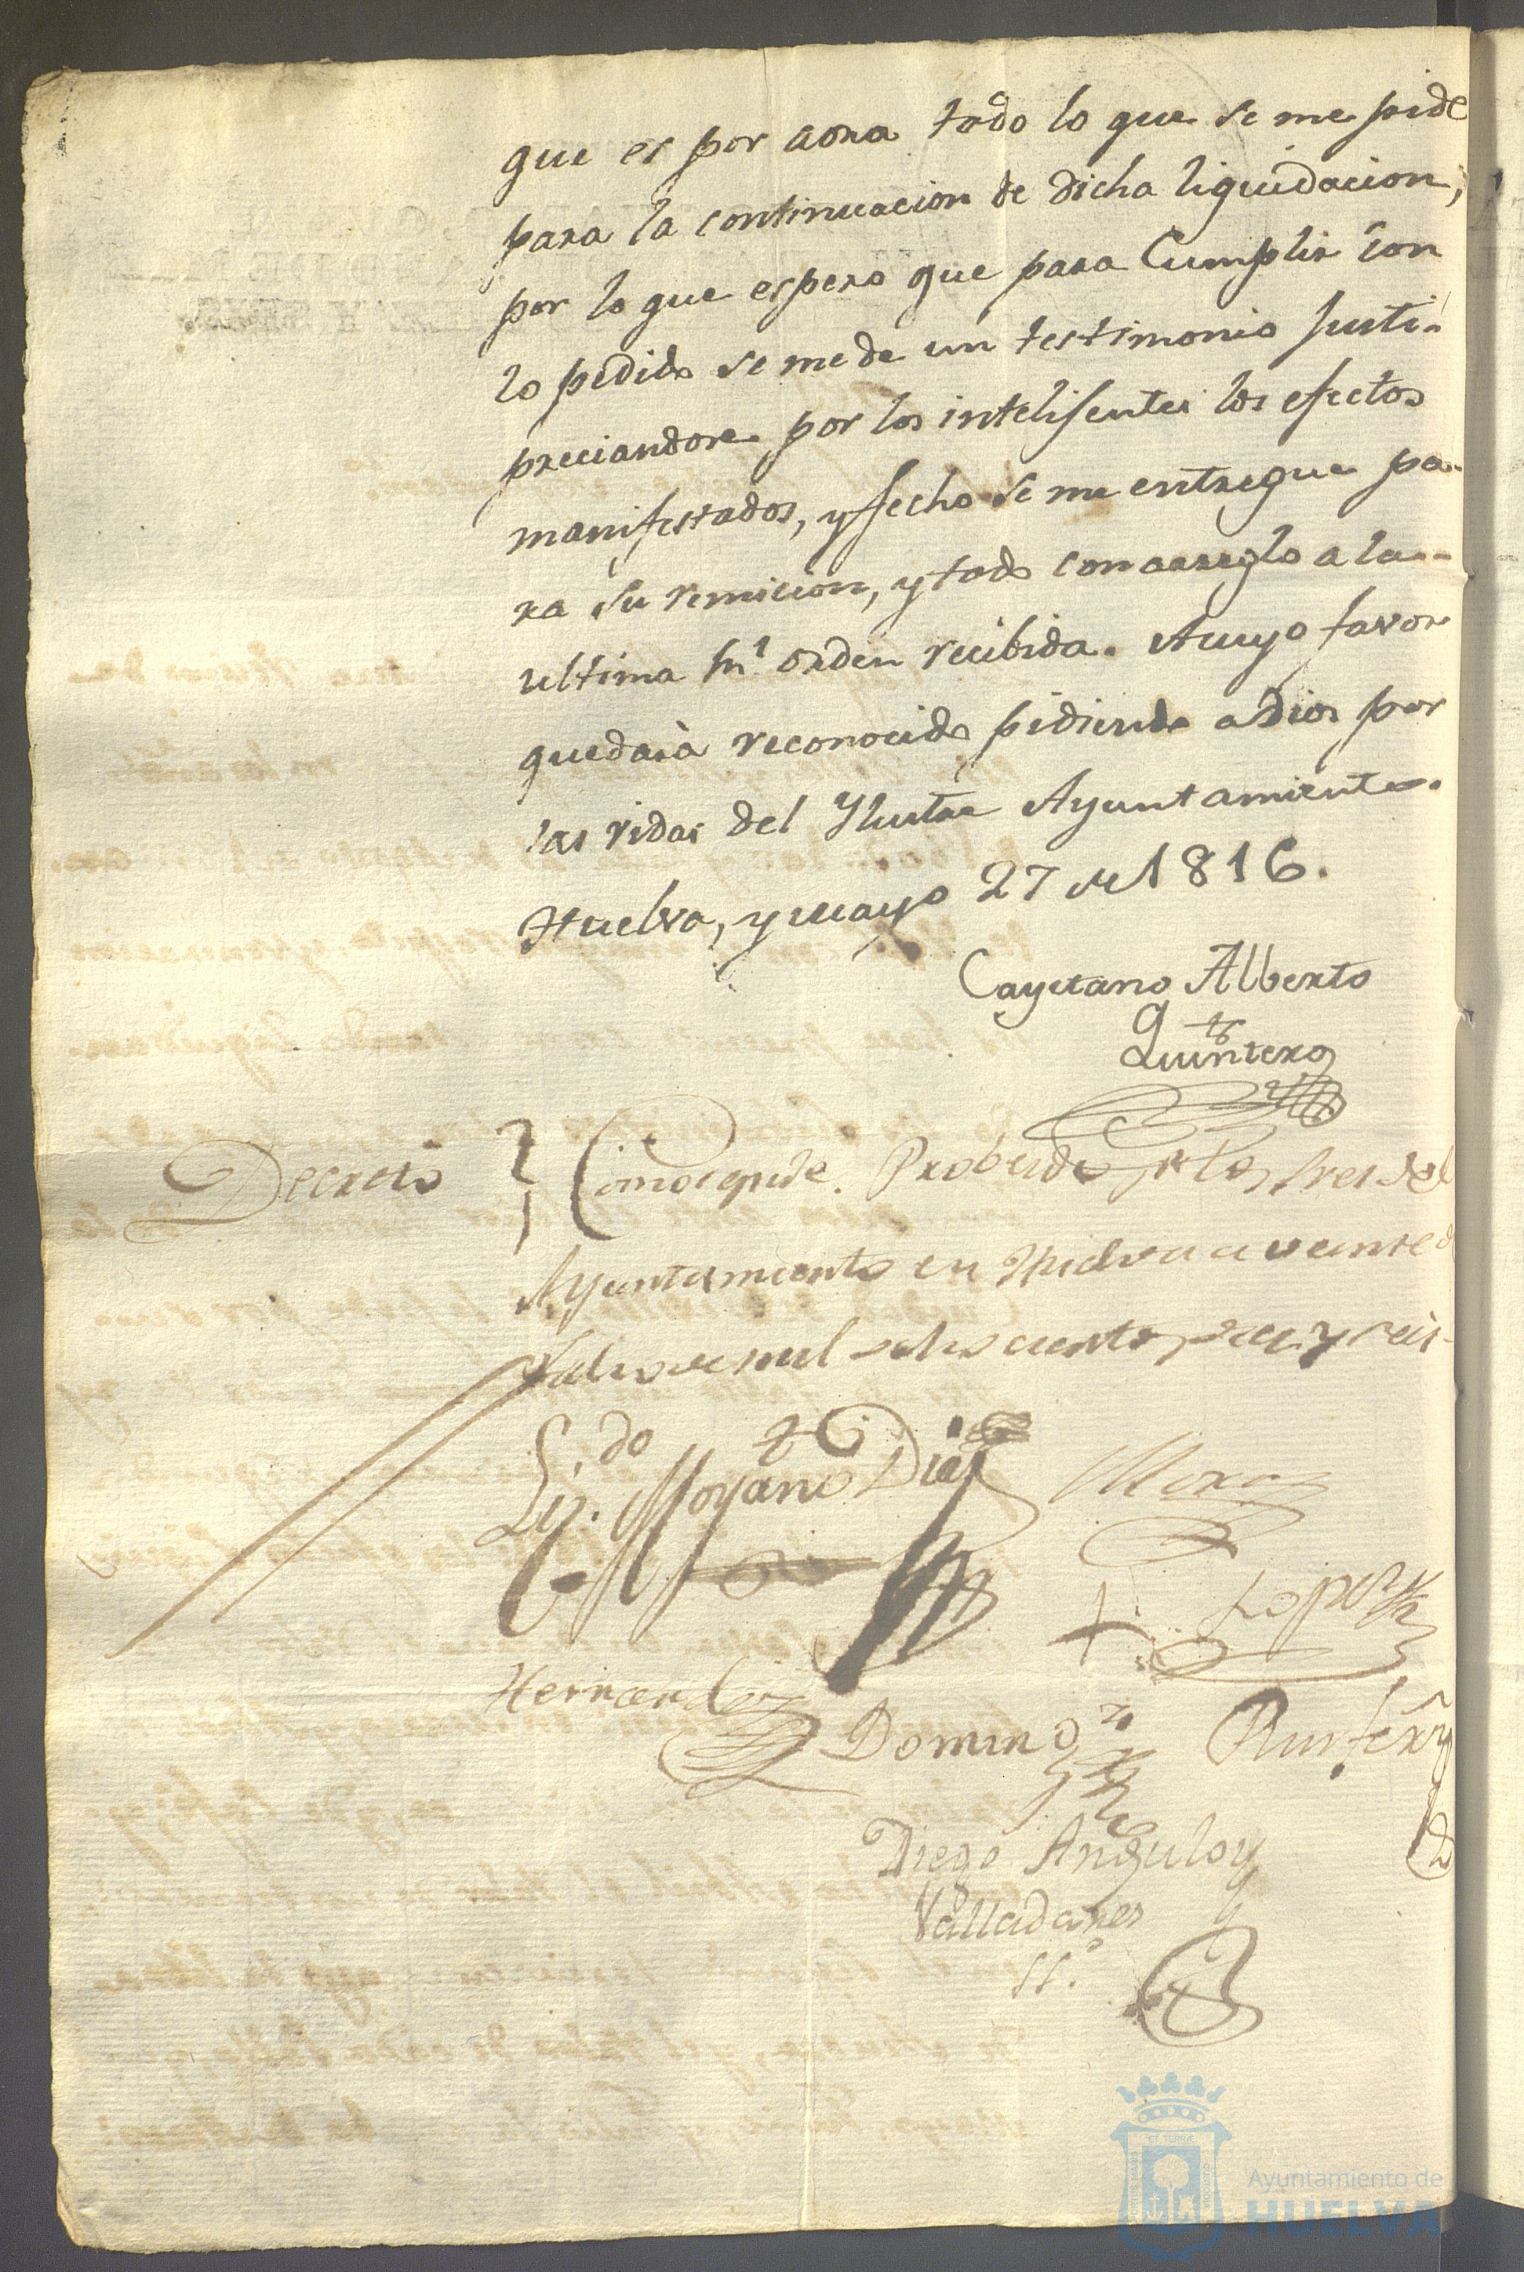 que es por aora todo lo que se me pide
para la continuacion de dicha liquidacion,
por lo que espero que para Cumplir con
lo pedido se me de un testimonio Justi-
preciandose por los intelijentes los efectos
manifestados, y fecho se me entregue pa-
ra su remicion, y todo con arreglo a la
ultima orden recibida. A cuyo favor
quedarà reconocido pidiendo a Dios por
las vidas del Ylustre Ayuntamiento.
Huelva, y mayo 27 de 1816.
Cayetano Alberto
Quintero
Decreto
Como se pide. Probeido pr los Sres del
Ayuntamiento en Huelva a veinte
Julio de mil ochocientos diez y seis
Lizdo. Moyano Diaz
Mora
Lopez
Hernandez
Domingz
Diego Angulo y
Valladares
SSo.
Ayuntamiento de
HUELVA